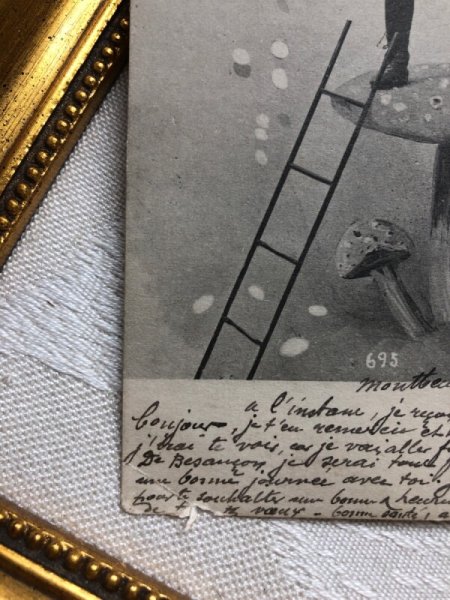 695
Montbe
a l'instant, je reço
bonjour, je t'en remercie et
j'irai te voir, car je vais aller f
De Besançon, je serai
une bonne journée avec toi
pour te souhaiter une bonne & heure
de vœux - bonne santé, a